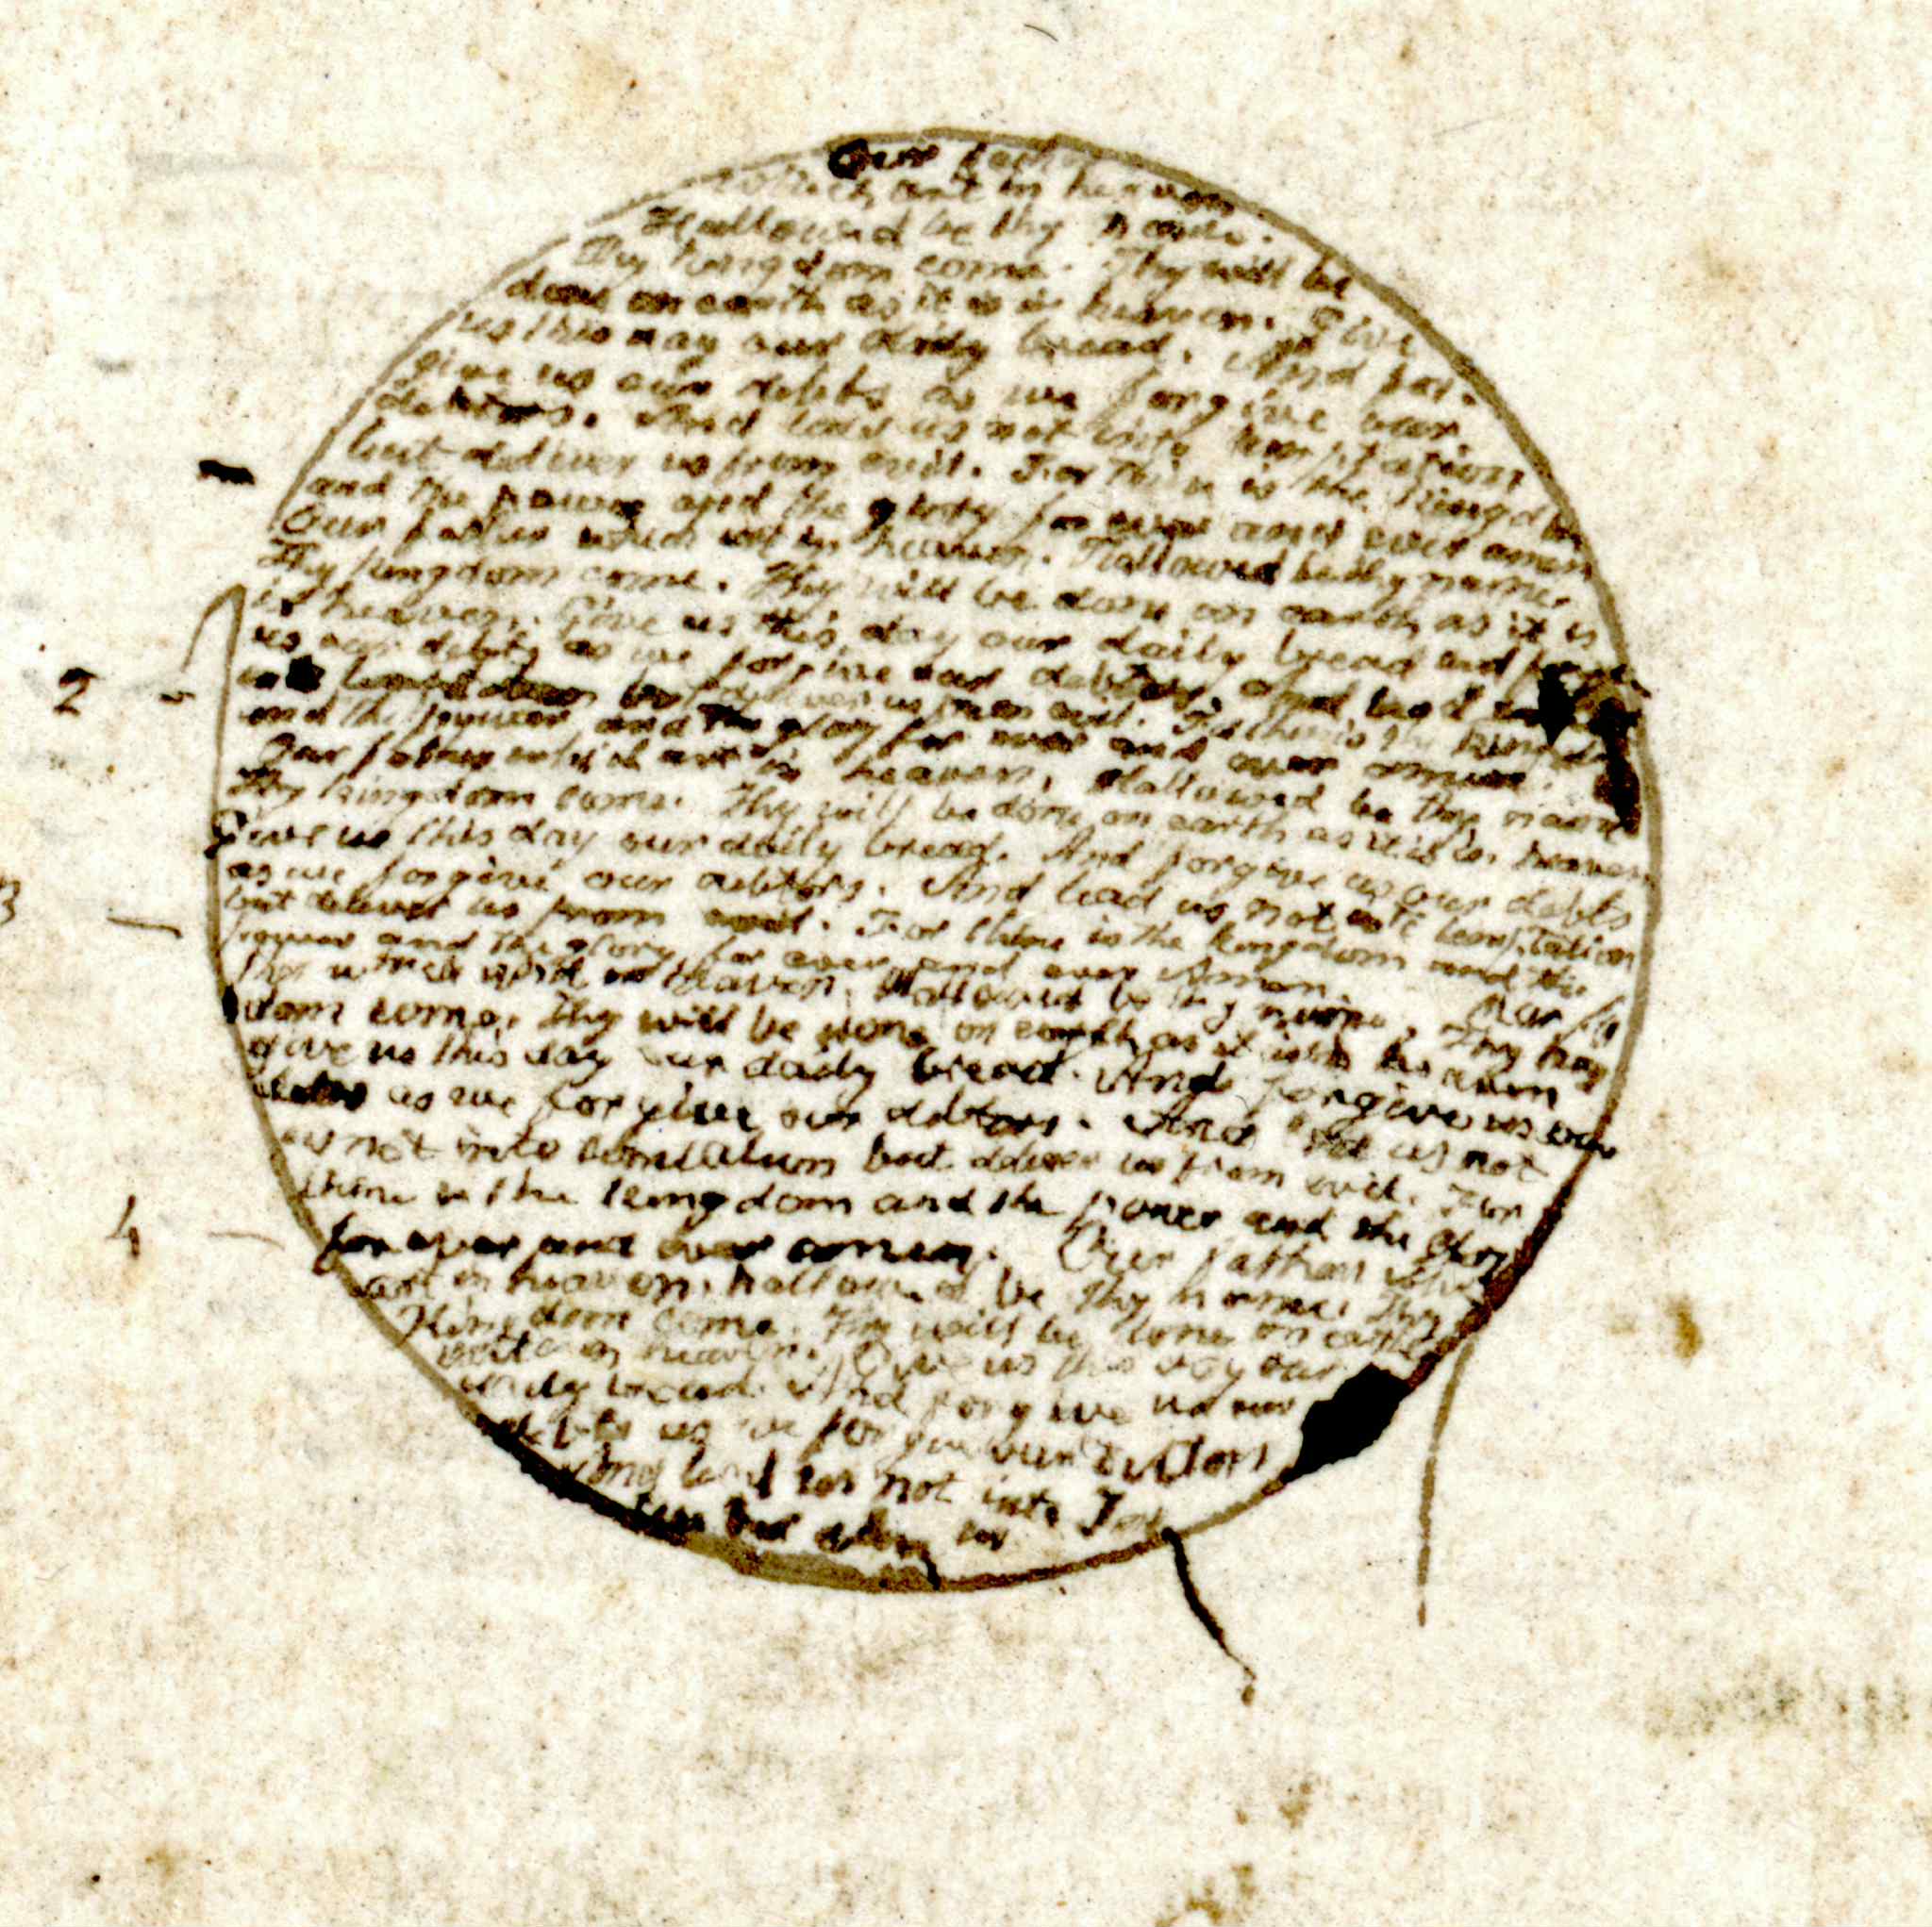 Our father
which art in heaven
Hallowed be thy name.
Thy kingdom come. Thy will be
done on earth as it is in heaven. Give
us this day our daily bread. And for-
give us our debts as we forgive our
debtors. And lead us not into temptation
but deliver us from evil. For thine is the kingdom
and the power and the glory for ever and ever amen
Our father which art in heaven. Hallowed be thy name.
Thy kingdom come. Thy will be done on earth as it is
in heaven. Give us this day our daily bread and forgive
us our debts as we forgive our debtors. And lead
us from evil. For thine is the kingdom
and the power and the glory for ever and ever amen.
Our father which art in heaven, Hallowed be thy name
Thy kingdom come. Thy will be done on earth as it is in heaven
Give us this day our daily bread. And forgive us our debts
as we forgive our debtors. And lead us not into temptation
but deliver us from evil. For thine is the kingdom and the
power and the glory for ever and ever Amen. Our fa
ther which art in heaven, Hallowed be thy name. Thy king
dom come. Thy will be done on earth as it is in heaven
give us this day our daily bread. And forgive us our
debts as we forgive our debtors. And us not
us not into but deliver us from evil. For
thine is the kingdom and the power and the glory
for ever and ever amen. Our father
art in heaven, hallowed be thy name. Thy
Kingdom come. Thy will be done on earth
as it is in heaven. Give us this day our
daily bread. And forgive us our
debts as we forgive our debtors
And lead us not into
us
2
3
4